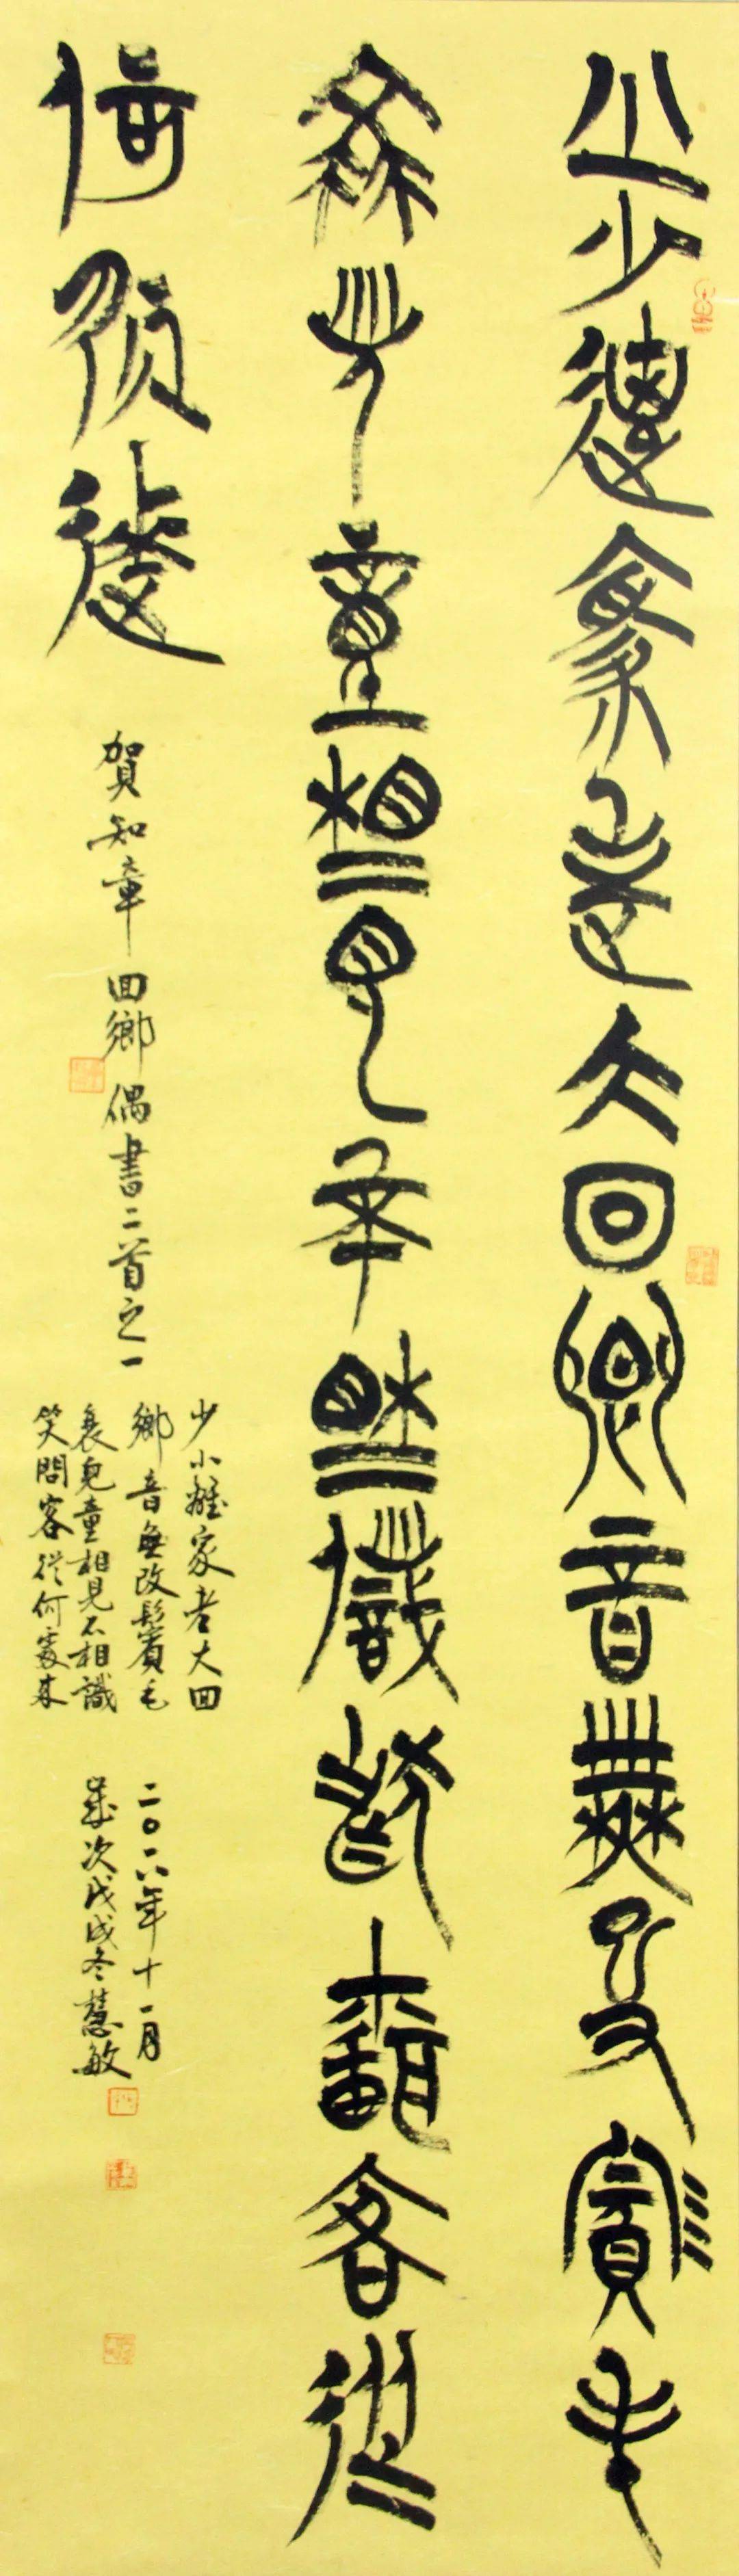 少小離家老大回鄉音無改鬢毛
衰兒童相見不相識笑問客從
何處來
賀知章回鄉偶書二首之一
少小離家老大回
鄉音無改鬢毛
衰兒童相見不相識
笑問客從何處來
二〇一八年十一月
歲次戊戌冬慧敏